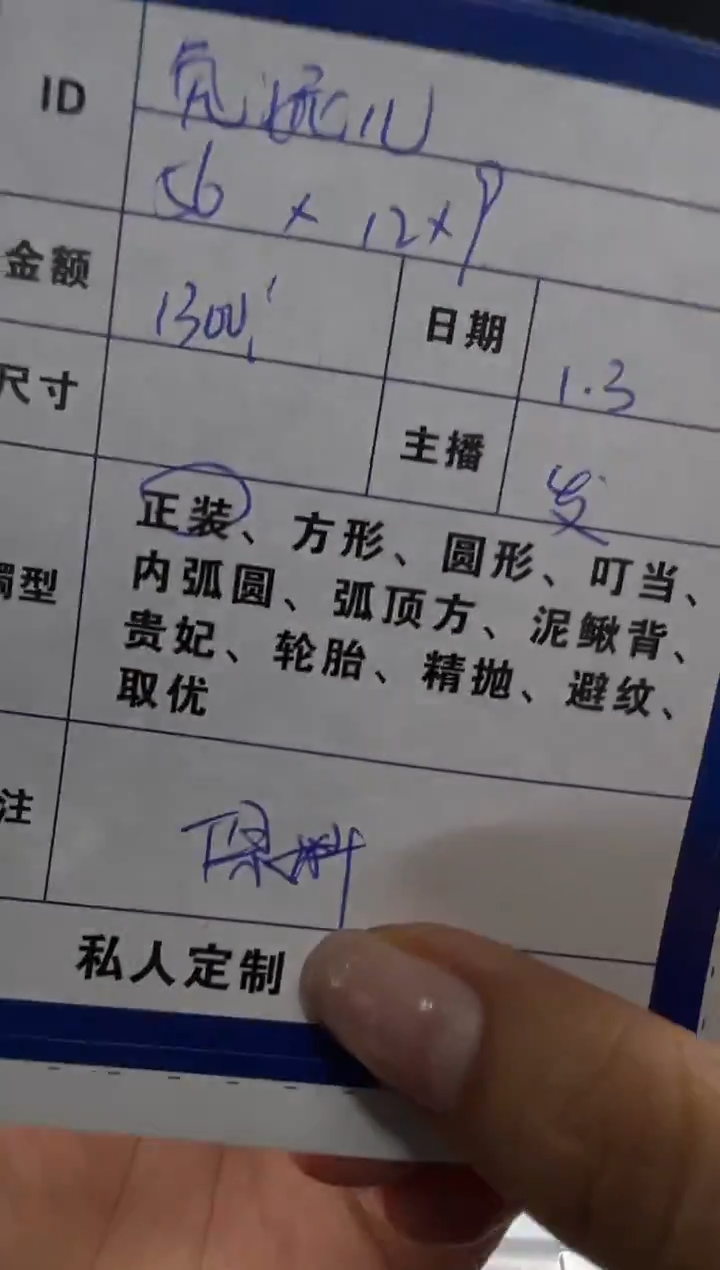 ID
56 × 12 × 9
金额 1300 日期 1.3
尺寸 主播
正装、方形、圆形、叮当、
型 内弧圆、弧顶方、泥鳅背、
贵妃、轮胎、精抛、避纹、
取优
注 保料
私人定制